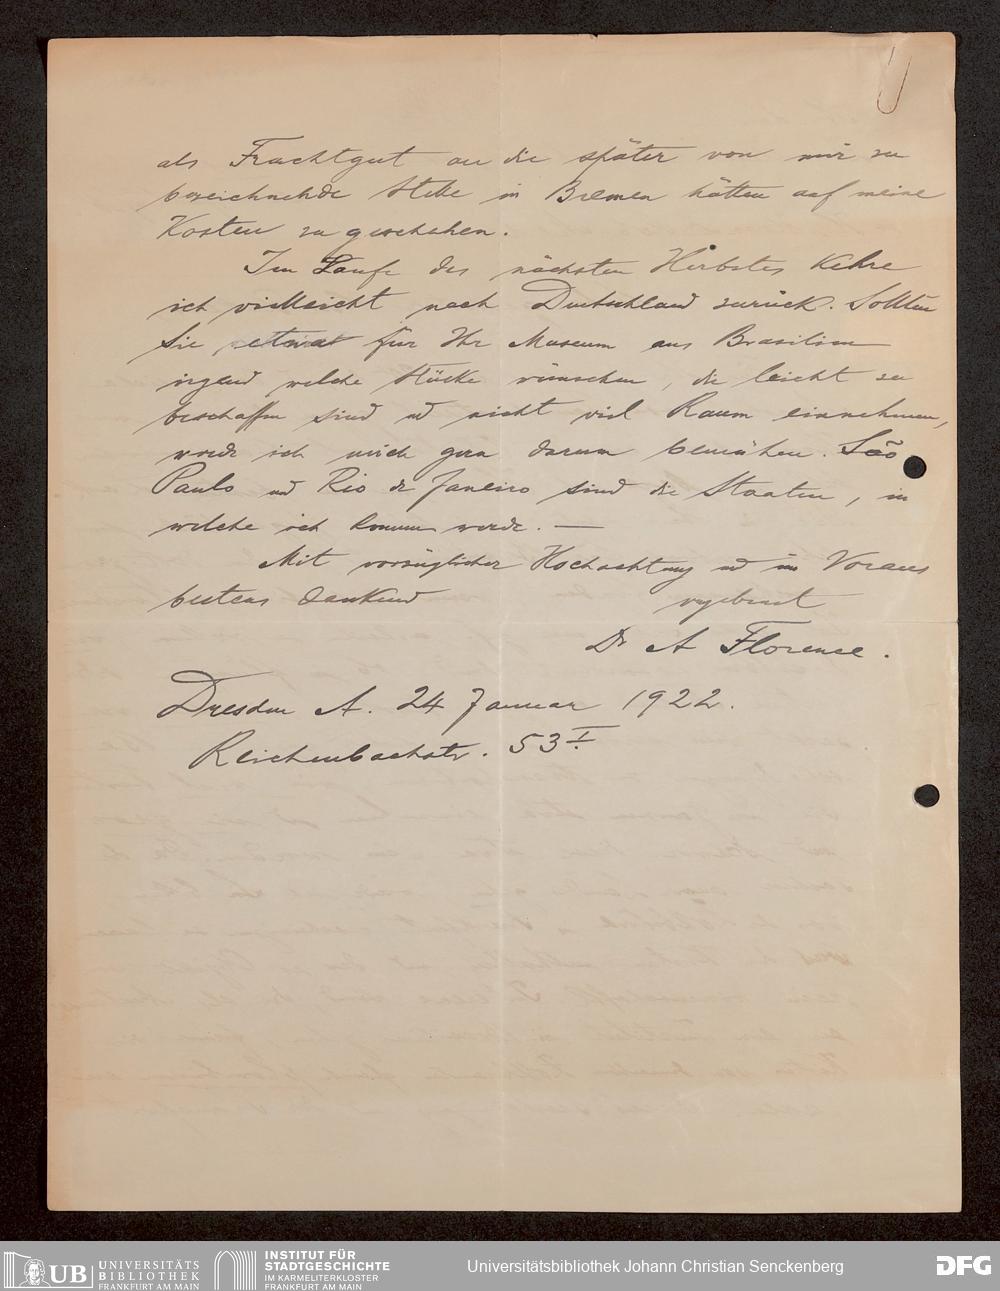 als Frachtgut an die später von mir zu
bezeichnende Stelle in Bremen hätten auf meine
Kosten zu geschehen.
Im Laufe des nächsten Herbstes kehre
ich vielleicht nach Deutschland zurück. Sollten
Sie für Ihr Museum aus Brasilien
irgend welche Stücke wünschen, die leicht zu
beschaffen sind und nicht viel Raum einnehmen,
werde ich mich gern darum bemühen. São
Paulo und Rio de Janeiro sind die Staaten, in
welche ich komme werde. —
Mit vorzüglicher Hochachtung und im Voraus
bestens dankend ergebenst
Dr A Florence.
Dresden A. 24 Januar 1922.
Reichenbachstr. 53 I.
UB UNIVERSITÄTS
BIBLIOTHEK
FRANKFURT AM MAIN
INSTITUT FÜR
STADTGESCHICHTE
IM KARMELITERKLOSTER
FRANKFURT AM MAIN
Universitätsbibliothek Johann Christian Senckenberg
DFG